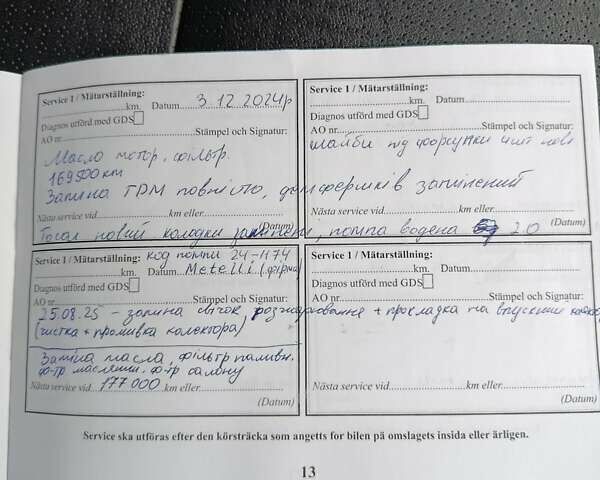 Service 1 / Mätarställning:
km. Datum 3.12.2024р
Diagnos utförd med GDS
AO nr. Stämpel och Signatur:
Масло мотор, фільтр.
169500 км
Заміна ГРМ повністю, демфершків замінений
Nästa service vid km eller (Datum)
Тосол новий колодки замінені, помпа водена 2.0
Service 1 / Mätarställning:
km. Datum
Diagnos utförd med GDS
AO nr. Stämpel och Signatur:
шайби під форсунки 4 шт нові
Nästa service vid km eller
(Datum)
код помпи 24-1174
Service 1 / Mätarställning:
km. Datum Metelli (фірма)
Diagnos utförd med GDS
AO nr. Stämpel och Signatur:
25.08.25 - заміна свічок, + прокладка та впускний
(чистка + промивка колектора)
Заміна масла, фільтр паливн.
ф-тр маслении. ф-тр салону
Nästa service vid 177 000 km eller
(Datum)
Service 1 / Mätarställning:
km. Datum
Diagnos utförd med GDS
AO nr. Stämpel och Signatur:
Nästa service vid km eller
(Datum)
Service ska utföras efter den körsträcka som angetts for bilen på omslagets insida eller årligen.
13